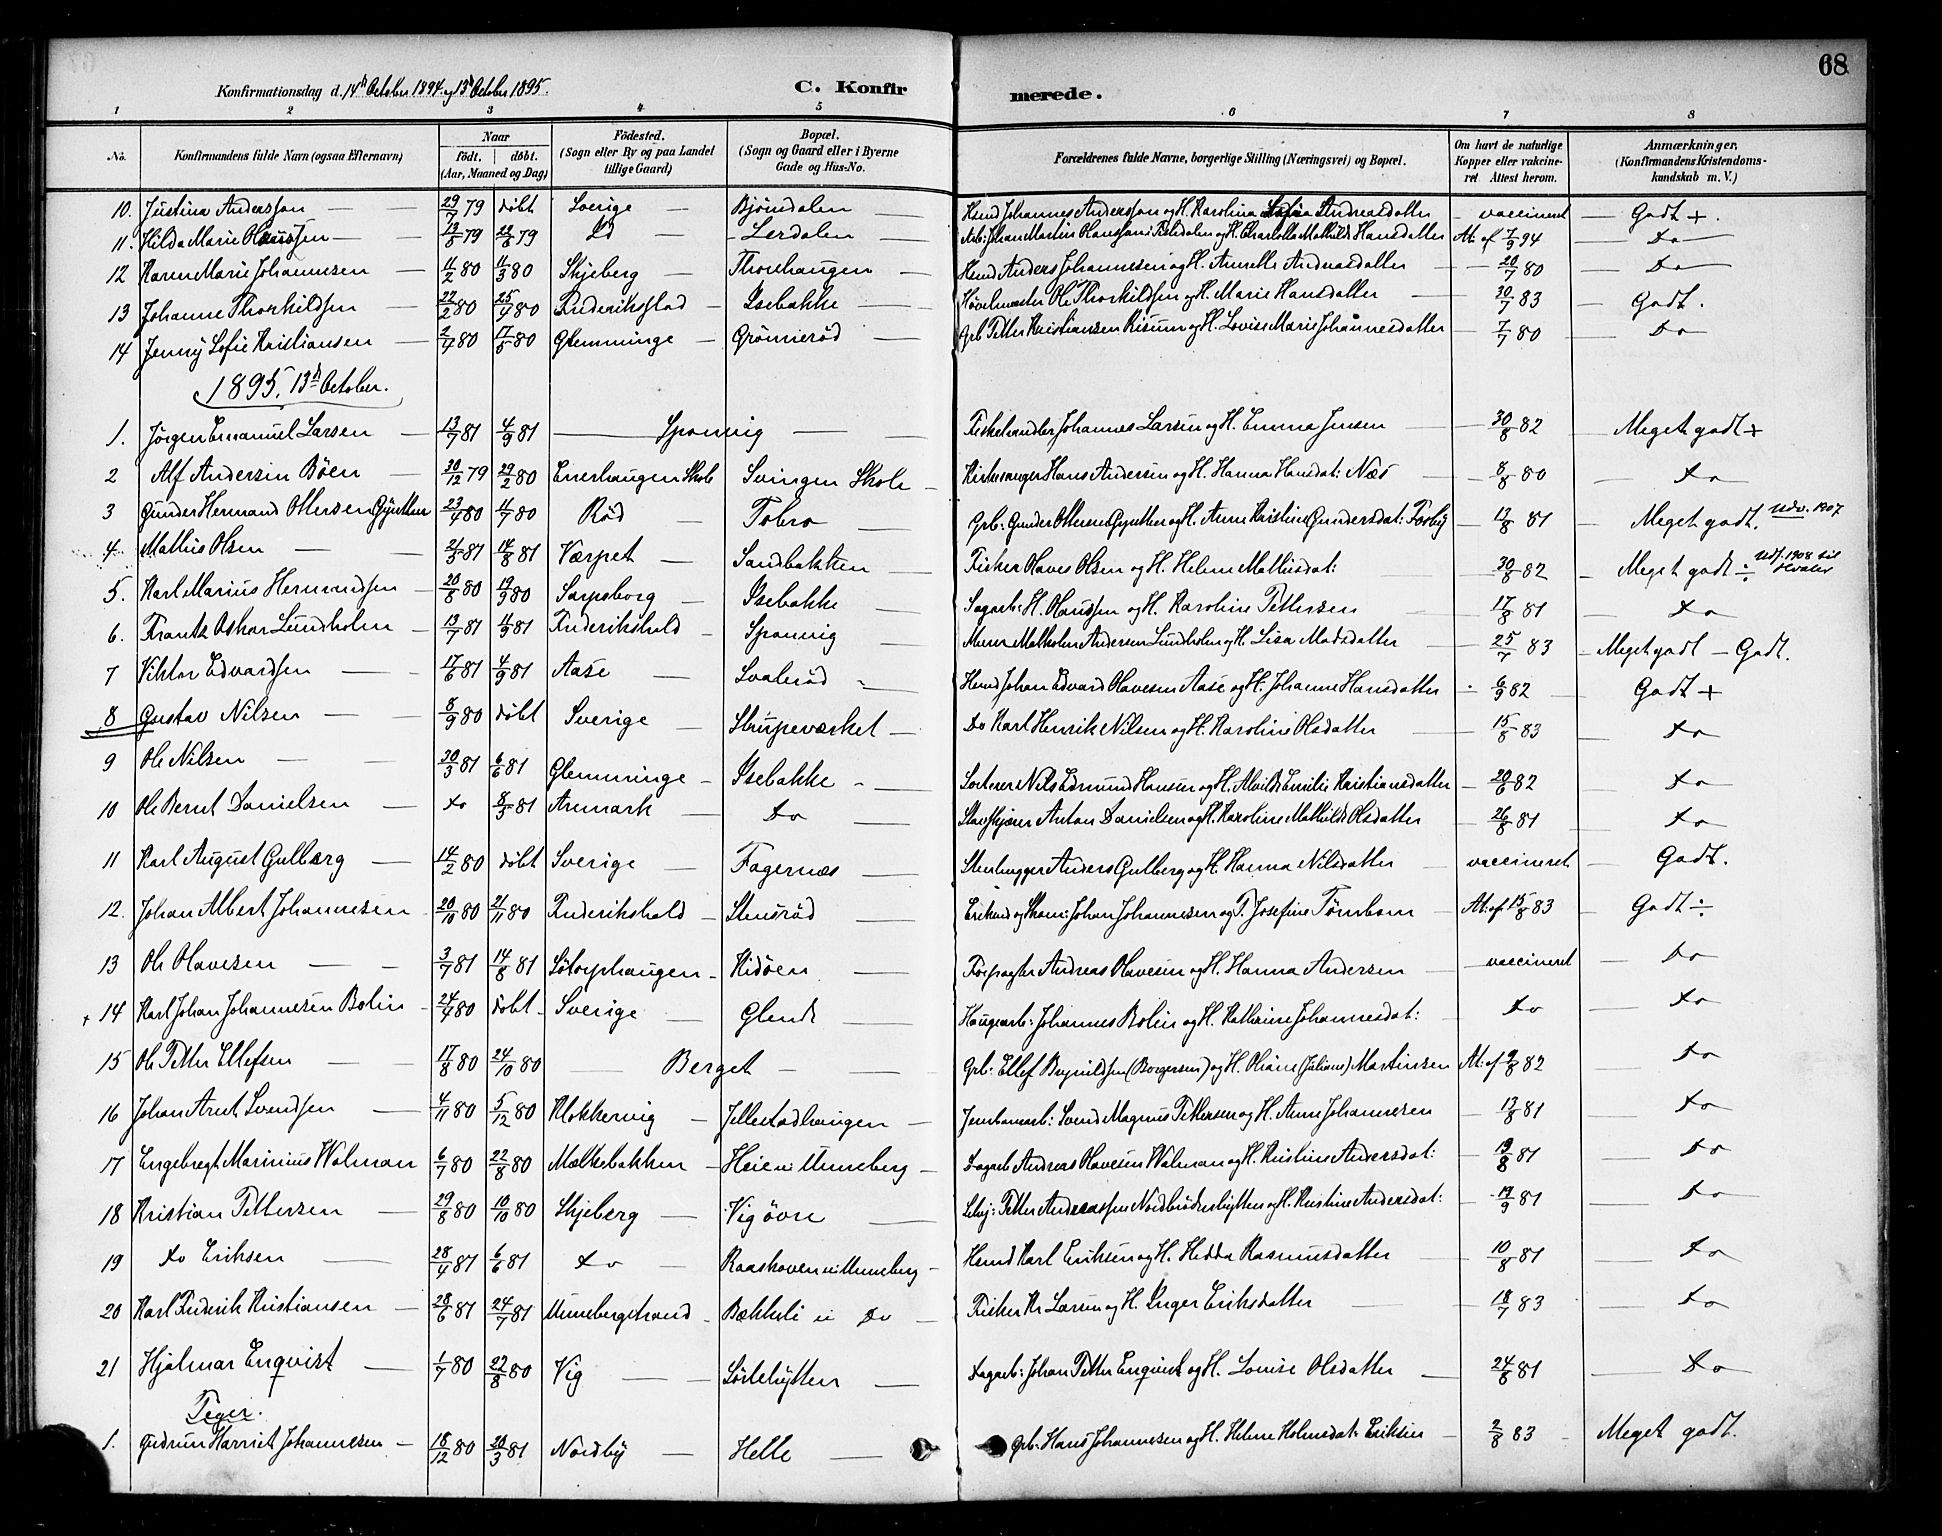 68
Konfirmationsdag d. 14d October 1894 og 13d October 1895.
C. Konfirmerede.
1 2 3 4 5 6 7 8
No. Konfirmandens fulde Navn (ogsaa Efternavn) Naar födt. döbt. (Aar, Maaned og Dag) Födested. (Sogn eller By og paa Landet tillige Gaard) Bopæl. (Sogn og Gaard eller i Byerne Gade og Hus-No. Forældrenes fulde Navne, borgerlige Stilling (Næringsvei) og Bopæl. Om havt de naturlige Kopper eller vakcineret Attest herom. Anmærkninger, (Konfirmandens Kristendomskundskab m. V.)
10. Justina Andersson 29/7 79 döbt Sverige Bjöindalen Husmd Johannes Andersson og H. Karolina Sofia Andreasdatter vaccineret Godt +.
11. Hilda Marie Olaussen 13/8 79 79 Id Lerdalen Arb: Johan Martin Olaussen og H. Charlotte Mathilde Hansdatter At: af 7/9 94 Do
12 Karen Marie Johannesen 11/2 80 11/3 80 Skjeberg Thorehaugen Husmd Anders Johannesen og H. Annette Andreasdatter 20/7 80 Do
13 Johanne Thorkildsen 22/2 80 25/4 80 Frederiksstad Isebakke Hövelmester Ole Thorkildsen og H. Marie Hansdatter 30/7 83 Godt.
14 Jenny Sofie Kristiansen 2/4 80 17/5 80 Glemminge Grönneröd Grb Petter Kristiansen Risum og H. Lovise Marie Johannesdatter 7/7 80 Do
1895, 13d October.
1. Jörgen Emanuel Larsen 13/7 81 4/9 81 Sponvig Fiskehandler Johannes Larsen og H. Emma Jensen 30/8 82 Meget godt +
2 Alf Andersen Böen 30/12 79 29/2 80 Enerhaugen Skole Svingen Skole Kirkesanger Hans Andersen og H. Hanna Hansdat: Næs 8/8 80 Do
3 Gunder Hermand Ottersen Gynther 23/4 80 11/7 80 Röd Tobro Grb: Gunder Ottersen Gynther og H. Anne Kristine Gundersdat: Torby 13/8 81 Meget godt. Udv. 1907
4 Mathis Olsen 21/3 81 14/8 81 Værpet Sandbakken Fisker Olaves Olsen og H. Helene Mathisdat: 30/8 82 Meget godt ÷ Udf: 1908 til Hvaler
5. Karl Marius Hermandsen 20/8 80 19/9 80 Sarpsborg Isebakke Sagarb: H. Olaussen og H. Karoline Pettersen 17/8 81 Do
6. Frantz Oskar Lundholm 13/7 81 11/9 81 Frederikshald Sponvig Murer Malkolm Andersen Lundholm og H. Lisa Madsdatter 25/7 83 Meget godt – Godt.
7 Viktor Edvardsen 17/6 81 4/9 81 Aase Svaleröd Husmd Johan Edvard Olavesen Aase og H. Johanne Hansdatter 6/9 82 Godt +
8 Gustav Nilsen 8/9 80 döbt Sverige Strupeværket Do Karl Henrik Nilsen og H. Karoline Olsdatter 15/8 83 Do
9 Ole Nilsen 30/3 81 6/6 81 Glemminge Isebakke Sorterer Nils Edmund Hansen og H. Alvilde Emilie Kristiansdatter 20/6 82 Do
10 Ole Bernt Danielsen Do 8/5 81 Aremark Do Stavskjærer Anton Danielsen og H. Karoline Mathilde Olsdatter 26/8 81 Do
11 Karl August Gulberg 14/2 80 döbt Sverige Fagernæs Stenhugger Anders Gulberg og H. Hanna Nilsdatter vaccineret Godt.
12. Johan Albert Johannesen 20/10 80 21/11 80 Frederikshald Stensröd Enkemd og Skom: Johan Johannesen og F. Josefine Törnbom At: af 15/8 83 Godt ÷
13 Ole Olavesen 3/7 81 14/8 81 Sötorphaugen Kidöen Forpagter Andreas Olavesen og H. Hanna Andersen vaccineret Do
+ 14 Karl Johan Johannesen Bolin 24/4 80 döbt Sverige Glende Haugearb: Johannes Bolin og H. Kathrine Johannesdat: Do Do
15 Ole Petter Ellefsen 17/8 80 24/10 80 Berget Grb: Ellef Brynildsen (Borgersen) og H. Oliane (Juliane) Martinsen At: af 9/8 82 Do
16 Johan Arnt Svendsen 4/11 80 5/12 80 Klokkervig Jellestadhaugen Jernbanearb: Svend Magnus Pettersen og H. Anne Johannesen 13/8 81 Do
17 Engebregt Marinius Walman 6/7 80 22/8 80 Mælkebakken Heie u: Unneberg Dagarb Andreas Olavesen Walman og H. Kristine Andersdat: 19/8 81 Do
18 Kristian Pettersen 29/8 80 10/10 80 Skjeberg Vig övre Selvj: Petter Andreassen Nordbrödenhytten og H. Kristine Andersdat: 19/9 81 Do
19 Do Eriksen 28/4 81 6/6 81 Do Raashoven u: Unneberg Husmd Karl Eriksen og H. Hedda Rasmusdatter 10/8 81 Do
20 Karl Frederik Kristiansen 28/6 81 24/7 81 Unnebergstrand Bækkeli u: Do Fisker Kr. Larsen og H. Inger Eriksdatter 18/7 83 Do
21 Hjalmar Enqvist 1/7 80 22/8 80 Vig Sörlehytten Dagarb: Johan Petter Enqvist og H. Lovise Olsdatter 24/8 81 Do
Piger.
1. Gudrun Harriet Johannesen 18/12 80 20/3 81 Nordby Helle Grb: Hans Johannesen og H. Helene Holmsdat: Eriksen 2/8 83 Meget godt.